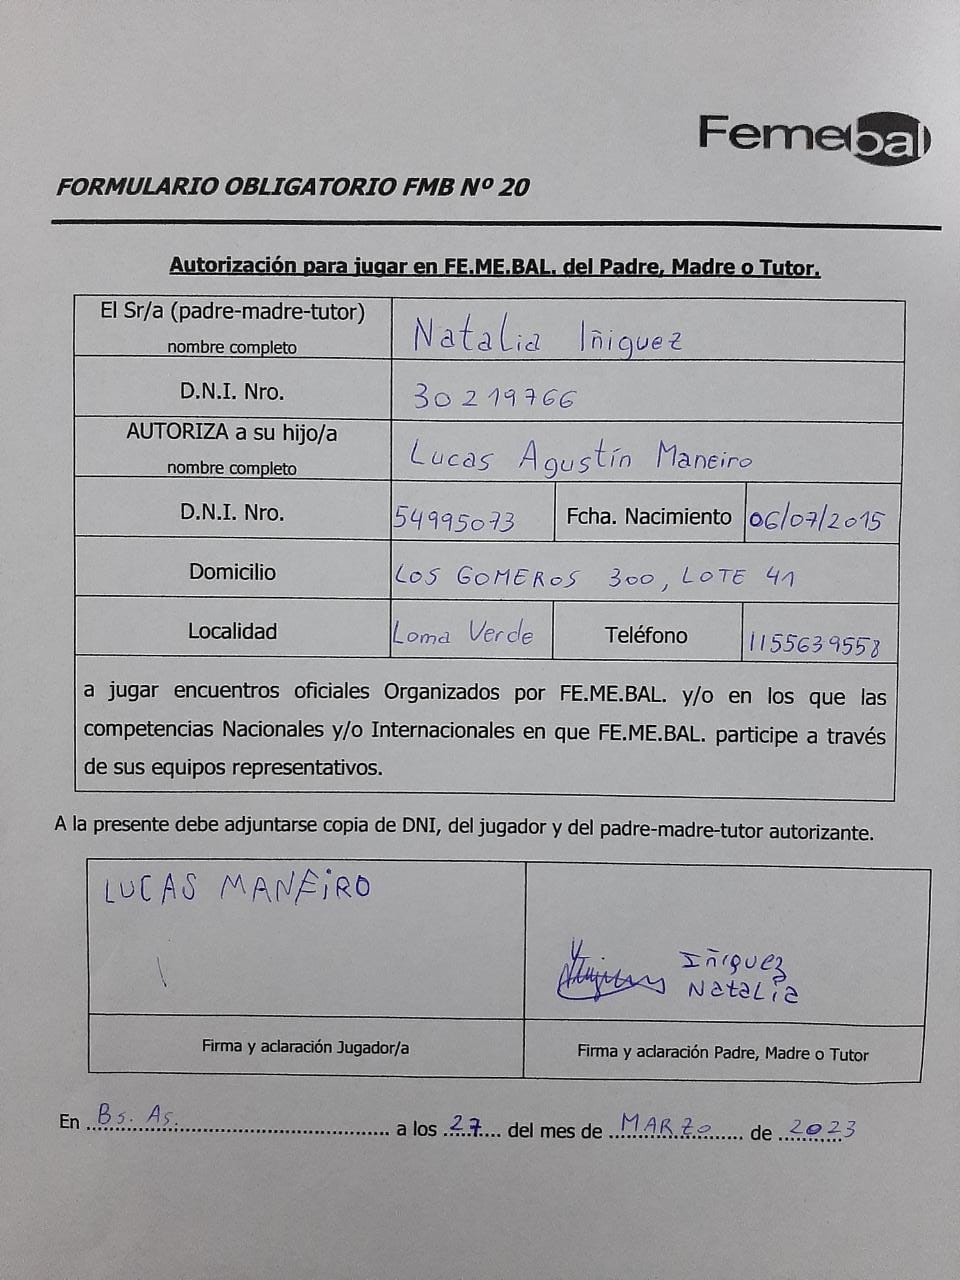 Femebal
FORMULARIO OBLIGATORIO FMB Nº 20
Autorización para jugar en FE.ME.BAL. del Padre, Madre o Tutor.
El Sr/a (padre-madre-tutor)
nombre completo
Natalia Iñiguez
D.N.I. Nro.
30219766
AUTORIZA a su hijo/a
nombre completo
Lucas Agustín Maneiro
D.N.I. Nro.
54995073
Fcha. Nacimiento
06/07/2015
Domicilio
LOS GOMEROS 300, LOTE 41
Localidad
Loma Verde
Teléfono
1155639558
a jugar encuentros oficiales Organizados por FE.ME.BAL. y/o en los que las
competencias Nacionales y/o Internacionales en que FE.ME.BAL. participe a través
de sus equipos representativos.
A la presente debe adjuntarse copia de DNI, del jugador y del padre-madre-tutor autorizante.
LUCAS MANEIRO
Iñiguez
Natalia
Firma y aclaración Jugador/a
Firma y aclaración Padre, Madre o Tutor
En Bs. As. a los 27 del mes de MARZO de 2023